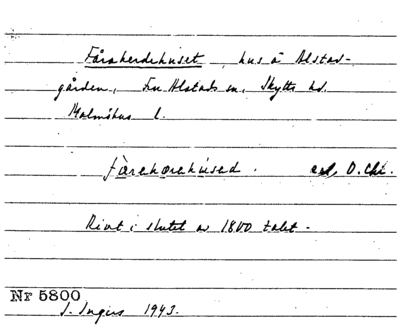 Fåraherdehuset, hus å Alstad-
gården, Fru Alstads sn, Skytts hd.
Malmöhus l.
fårahørehused. enl. O. Chr.
Rivet i slutet av 1800 talet.
Nr 5800
I. Ingers 1943.